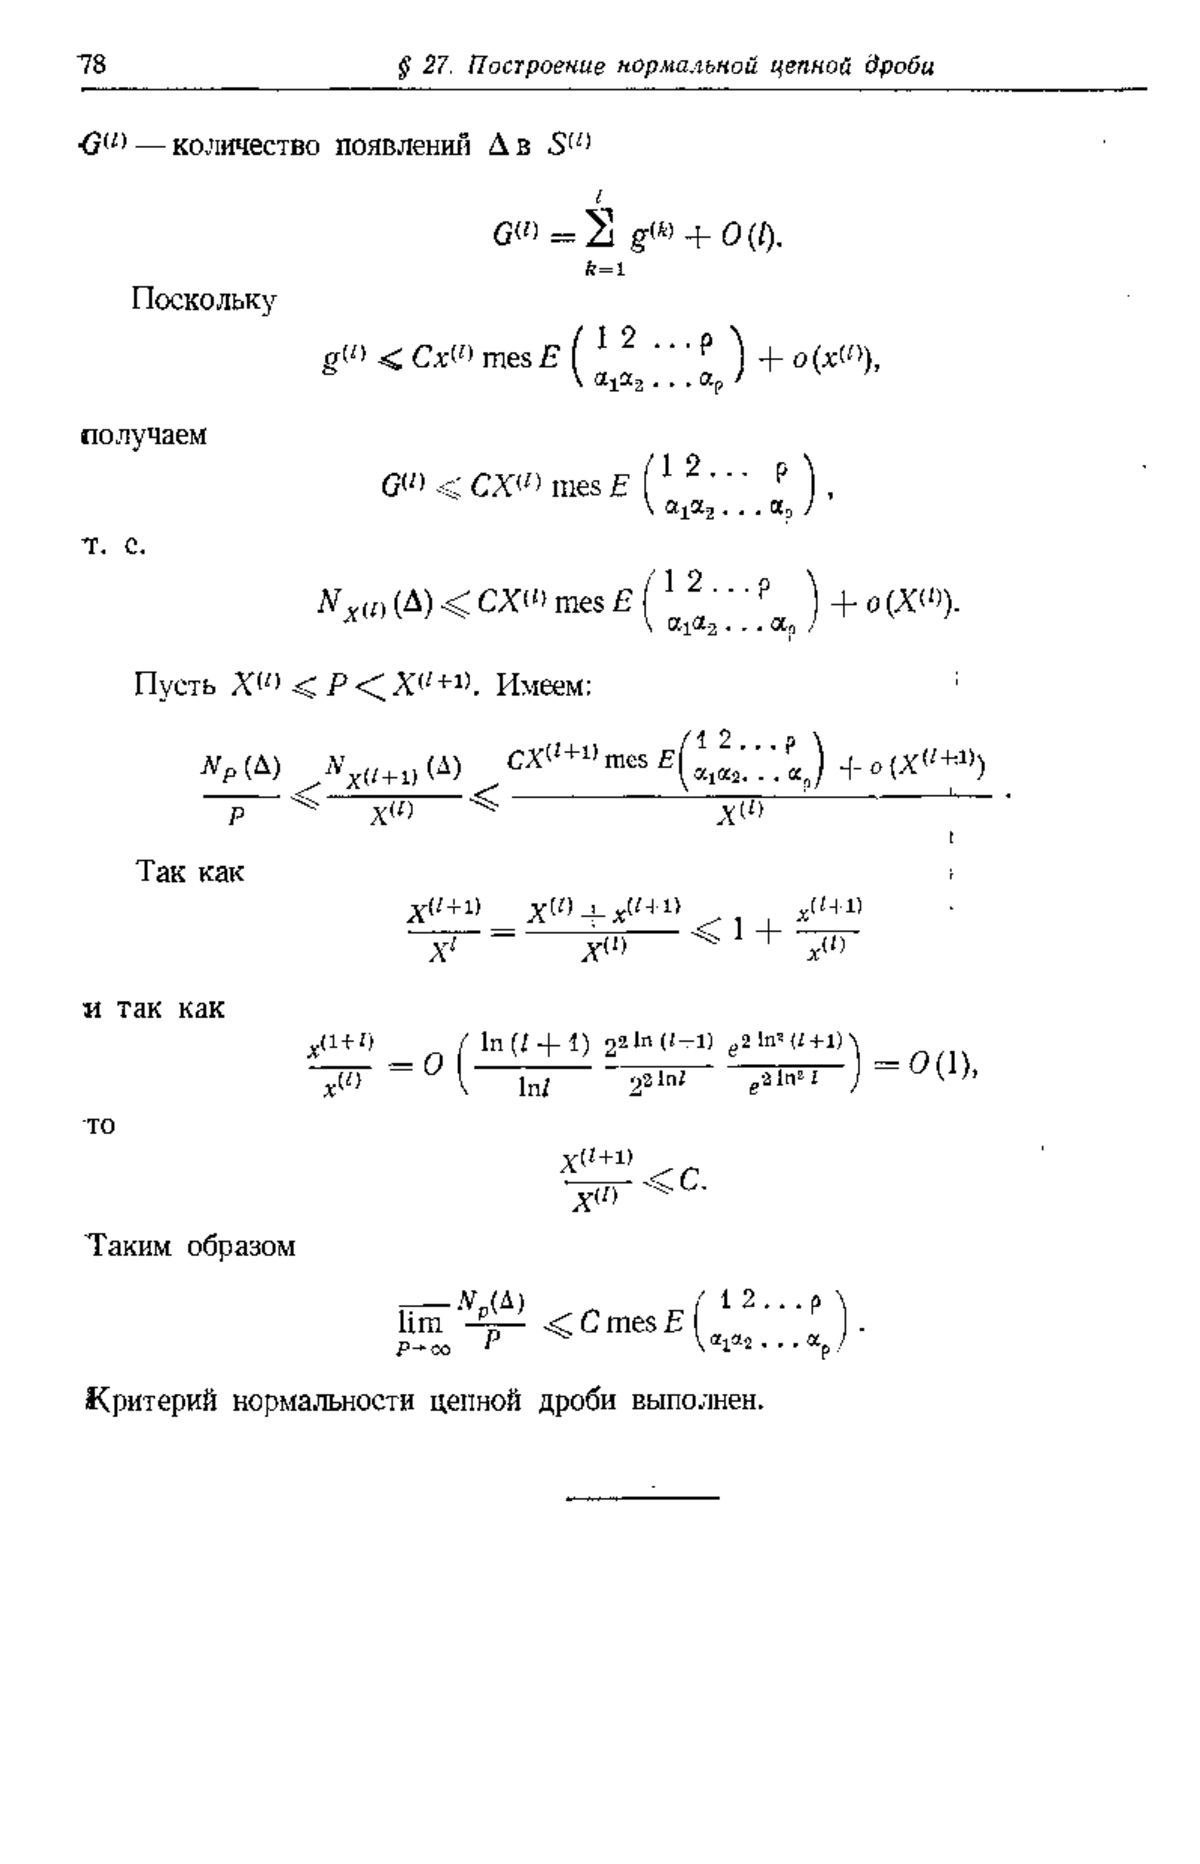 78 § 27. Построение нормальной цепной дроби
G^{(l)} — количество появлений Δ в S^{(l)}
G^{(l)} = \sum_{k=1}^{l} g^{(k)} + O(l).
Поскольку
g^{(l)} ⩽ Cx^{(l)} mes E \begin{pmatrix} 1 2 ... ρ \\ α_1α_2 ... α_ρ \end{pmatrix} + o(x^{(l)}),
получаем
G^{(l)} ⩽ CX^{(l)} mes E \begin{pmatrix} 1 2 ... ρ \\ α_1α_2 ... α_ρ \end{pmatrix},
т. е.
N_{X^{(l)}}(Δ) ⩽ CX^{(l)} mes E \begin{pmatrix} 1 2 ... ρ \\ α_1α_2 ... α_ρ \end{pmatrix} + o(X^{(l)}).
Пусть X^{(l)} ⩽ P < X^{(l+1)}. Имеем:
\frac{N_P(Δ)}{P} ⩽ \frac{N_{X^{(l+1)}}(Δ)}{X^{(l)}} ⩽ \frac{CX^{(l+1)} mes E \begin{pmatrix} 1 2 ... ρ \\ α_1α_2 ... α_ρ \end{pmatrix} + o(X^{(l+1)})}{X^{(l)}}.
Так как
\frac{X^{(l+1)}}{X^{l}} = \frac{X^{(l)} + x^{(l+1)}}{X^{(l)}} ⩽ 1 + \frac{x^{(l+1)}}{x^{(l)}}
и так как
\frac{x^{(1+l)}}{x^{(l)}} = O \left( \frac{ln (l + 1)}{ln l} \frac{2^{2 ln (l-1)}}{2^{2 ln l}} \frac{e^{2 ln^2 (l+1)}}{e^{2 ln^2 l}} \right) = O(1),
то
\frac{X^{(l+1)}}{X^{(l)}} ⩽ C.
Таким образом
\overline{lim}_{P→∞} \frac{N_p(Δ)}{P} ⩽ C mes E \begin{pmatrix} 1 2 ... ρ \\ α_1α_2 ... α_ρ \end{pmatrix}.
Критерий нормальности цепной дроби выполнен.